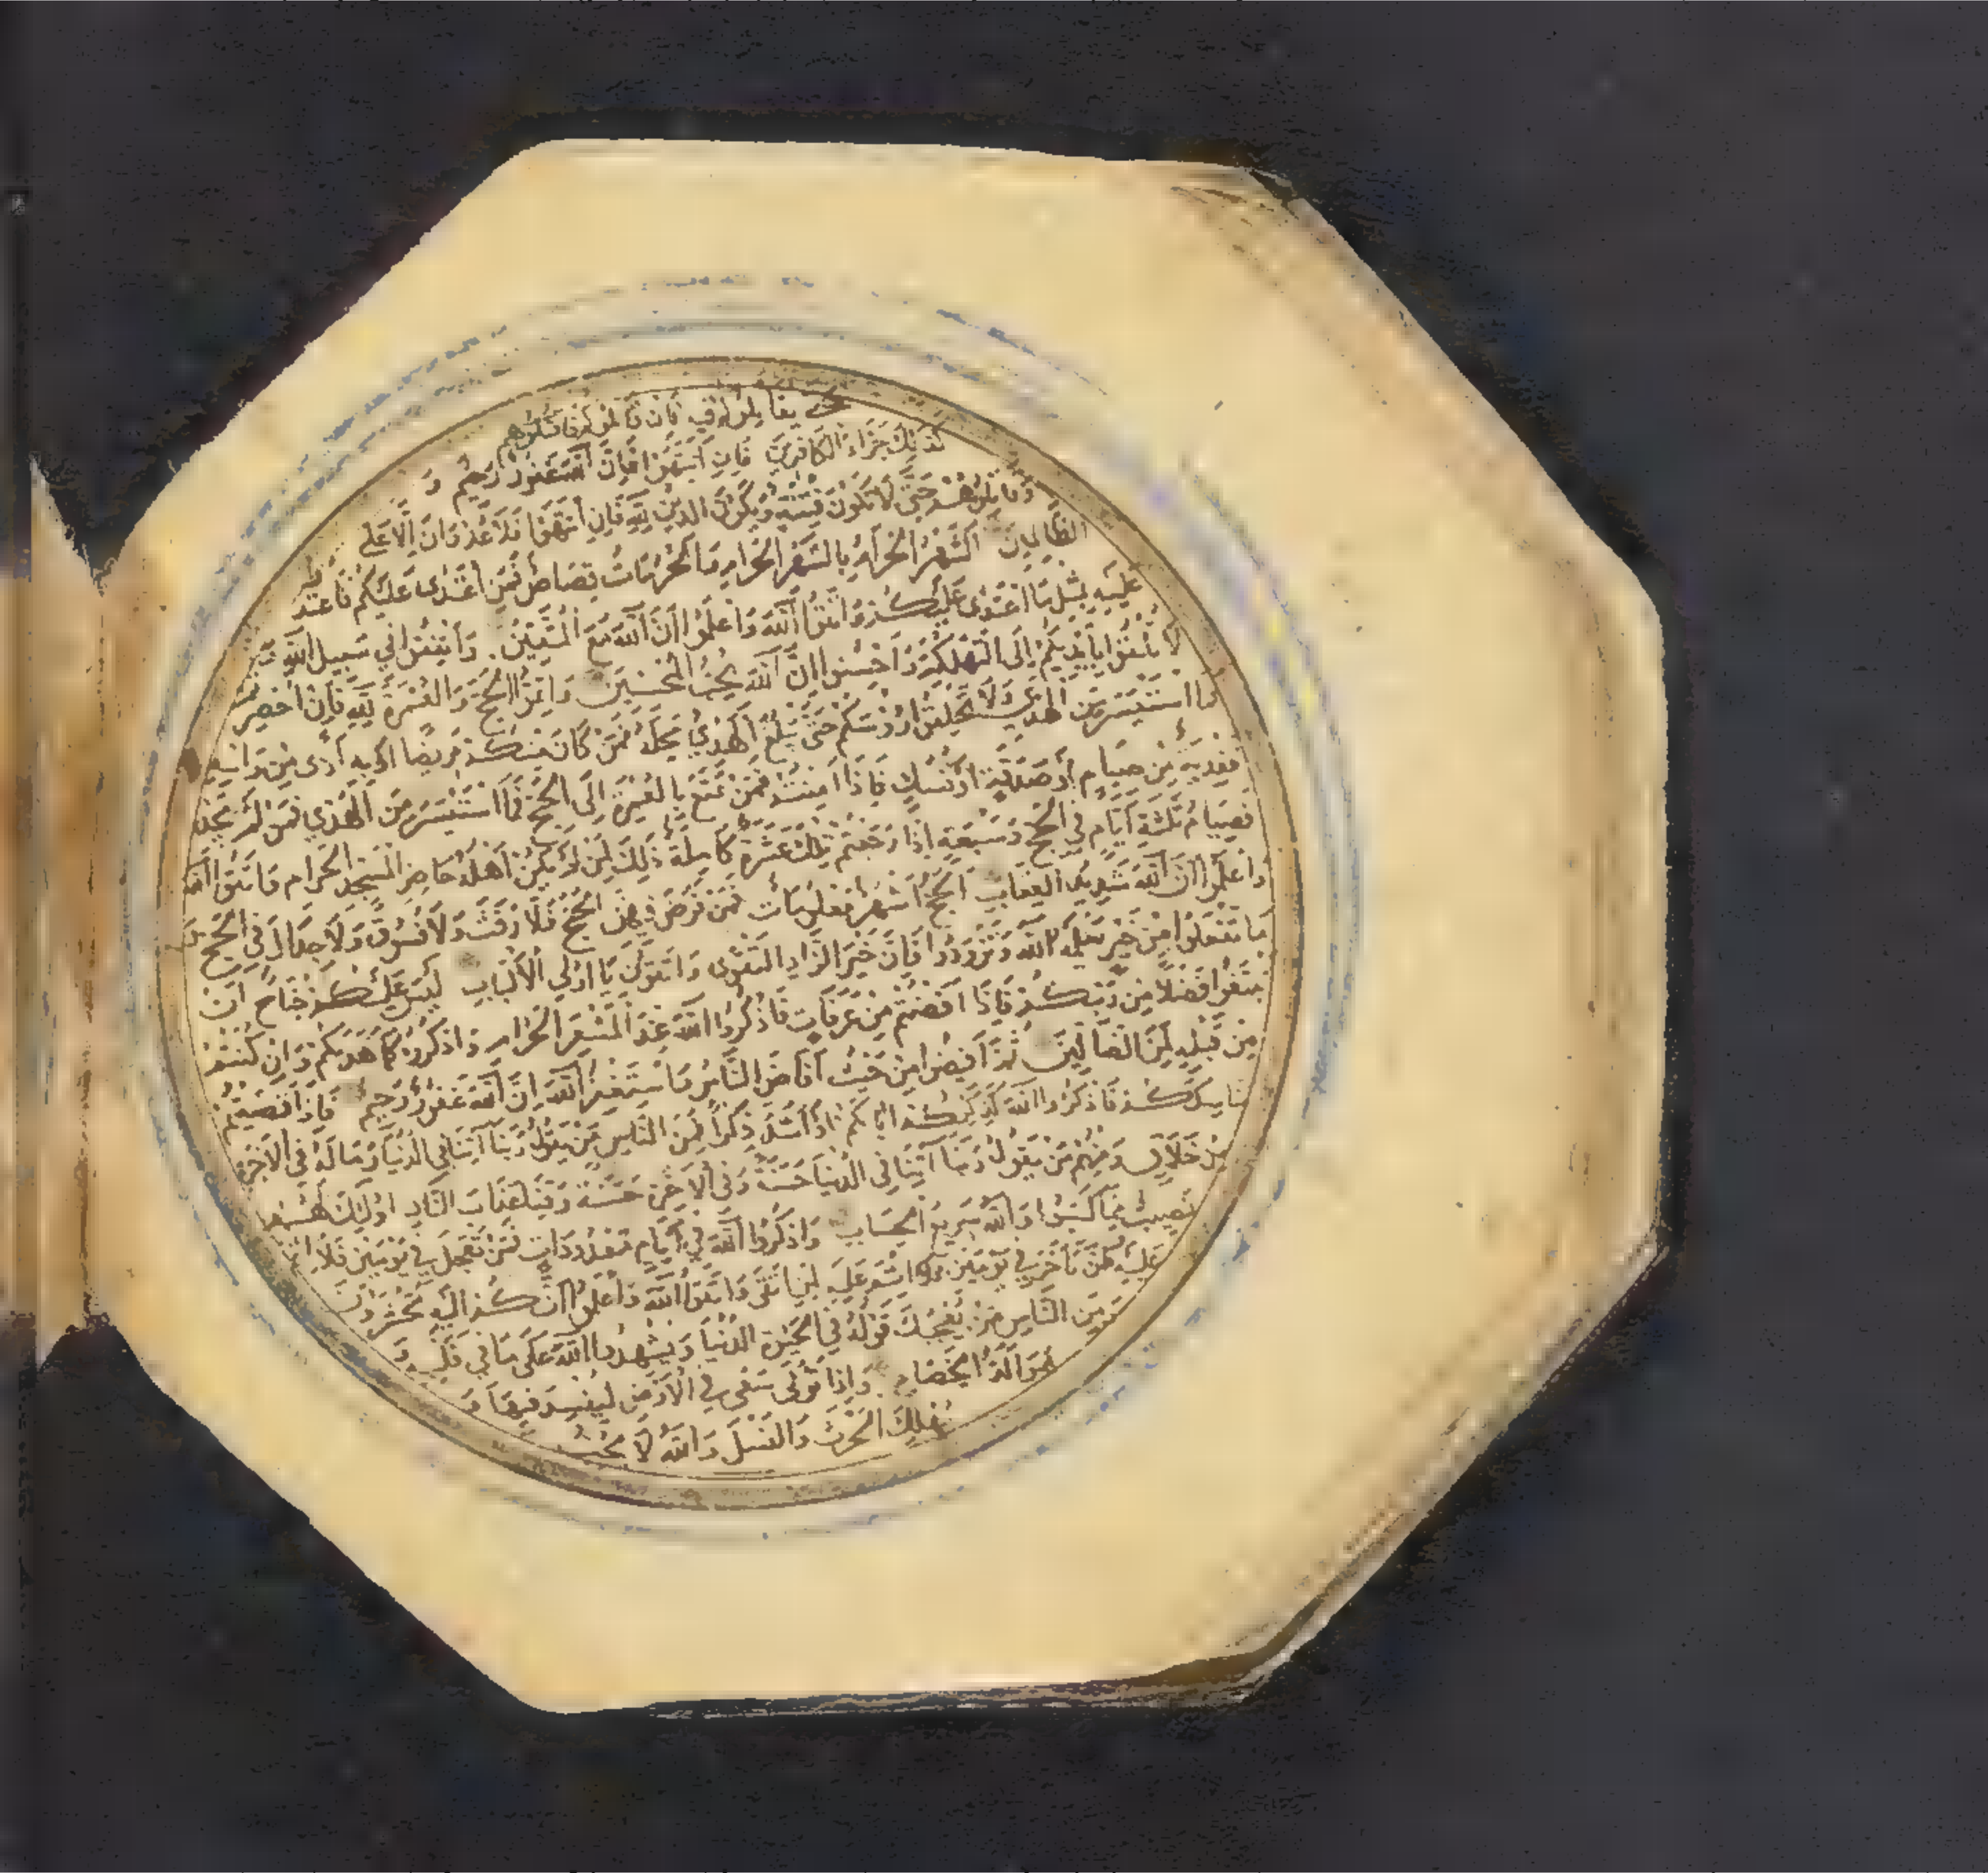 حتى يقاتلوكم فيه فان قاتلوكم فاقتلوهم
كذلك جزاء الكافرين فان انتهوا فان الله غفور رحيم و
وقاتلوهم حتى لا تكون فتنة ويكون الدين لله فان انتهوا فلا عدوان الا على
الظالمين الشهر الحرام بالشهر الحرام والحرمات قصاص فمن اعتدى عليكم فاعتدوا
عليه بمثل ما اعتدى عليكم واتقوا الله واعلموا ان الله مع المتقين وانفقوا في سبيل الله و
لا تلقوا بايديكم الى التهلكة واحسنوا ان الله يحب المحسنين واتموا الحج والعمرة لله فان احصرتم
فما استيسر من الهدى ولا تحلقوا رؤسكم حتى يبلغ الهدي محله فمن كان منكم مريضا او به اذى من راسه
ففدية من صيام او صدقة او نسك فاذا امنتم فمن تمتع بالعمرة الى الحج فما استيسر من الهدي فمن لم يجد
فصيام ثلثة ايام في الحج وسبعة اذا رجعتم تلك عشرة كاملة ذلك لمن لم يكن اهله حاضر المسجد الحرام واتقوا الله
واعلموا ان الله شديد العقاب الحج اشهر معلومات فمن فرض فيهن الحج فلا رفث ولا فسوق ولا جدال في الحج و
ما تفعلوا من خير يعلمه الله وتزودوا فان خير الزاد التقوى واتقون يا اولي الالباب ليس عليكم جناح ان
تبتغوا فضلا من ربكم فاذا افضتم من عرفات فاذكروا الله عند المشعر الحرام واذكروه كما هديكم وان كنتم
من قبله لمن الضالين ثم افيضوا من حيث افاض الناس واستغفروا الله ان الله غفور رحيم فاذا قضيتم
مناسككم فاذكروا الله كذكركم اباءكم او اشد ذكرا فمن الناس من يقول ربنا آتنا في الدنيا وما له في الاخرة
من خلاق ومنهم من يقول ربنا آتنا في الدنيا حسنة وفي الاخرة حسنة وقنا عذاب النار اولئك لهم
نصيب مما كسبوا والله سريع الحساب واذكروا الله في ايام معدودات فمن تعجل في يومين فلا اثم
عليه ومن تاخر في يومين فلا اثم عليه لمن اتقى واتقوا الله واعلموا انكم اليه تحشرون
ومن الناس من يعجبك قوله في الحيوة الدنيا ويشهد الله على ما في قلبه و
هو الد الخصام واذا تولى سعى في الارض ليفسد فيها و
يهلك الحرث والنسل والله لا يحب